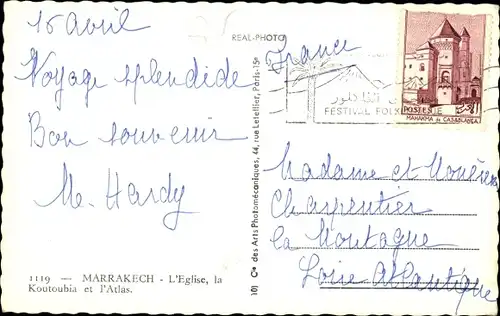 15 avril
Voyage splendide
Bon souvenir
M. Hardy
1119 — MARRAKECH - L'Eglise, la
Koutoubia et l'Atlas.
REAL-PHOTO
10) Cie des Arts Photomécaniques, 44, rue Letellier, Paris-15e
France
FESTIVAL FOLK
POSTES
MAHAKMA DE CASABLANCA
Madame et
Charpentier
La Montagne
Loire Atlantique